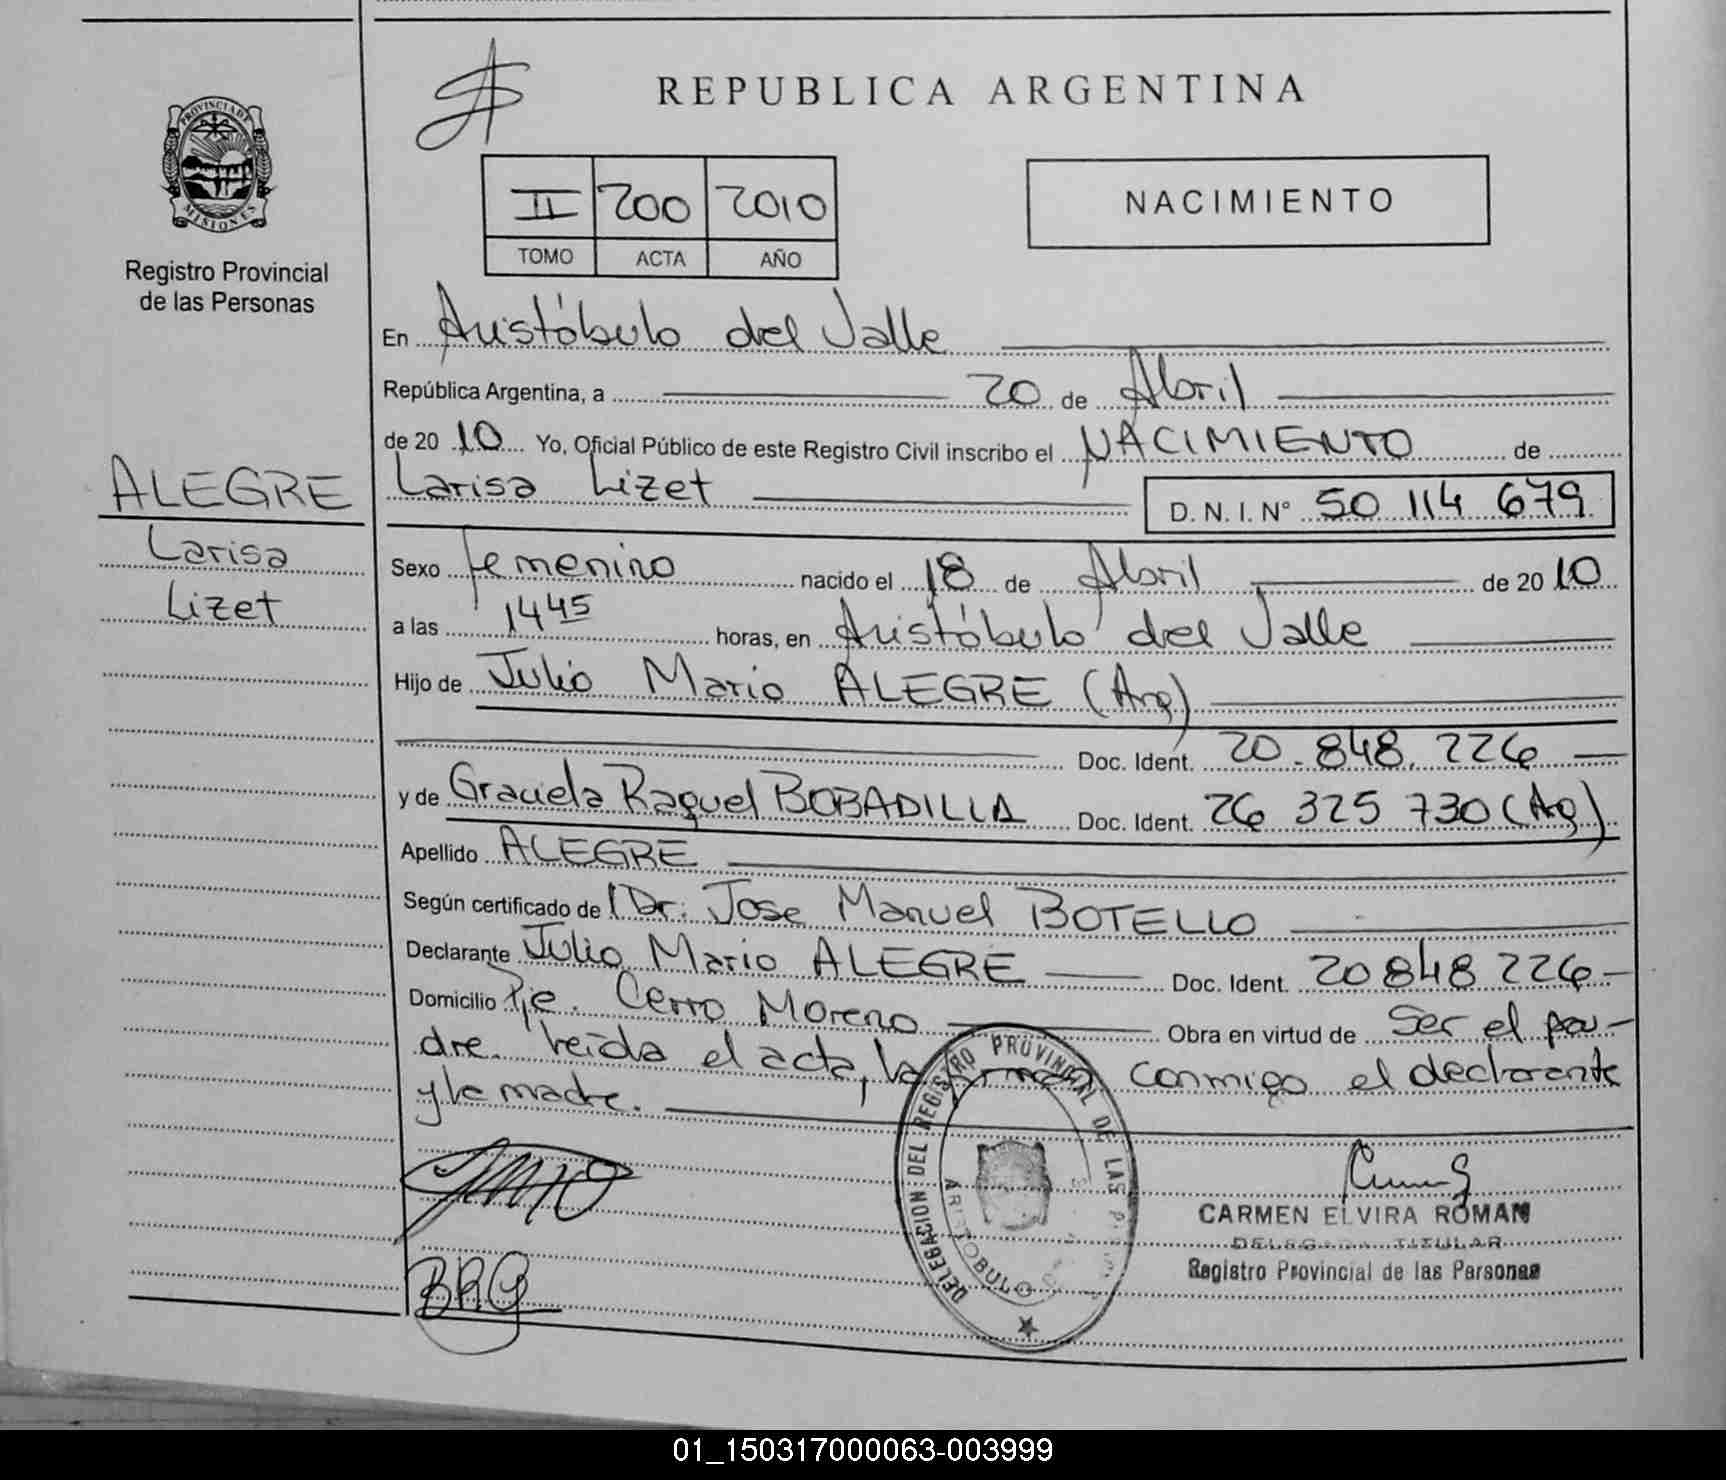 REPUBLICA ARGENTINA
PROVINCIA DE
MISIONES
Registro Provincial
de las Personas
II 200 2010
TOMO ACTA AÑO
NACIMIENTO
En Aristóbulo del Valle
República Argentina, a 20 de Abril
de 20 10 Yo, Oficial Público de este Registro Civil inscribo el NACIMIENTO de
ALEGRE
Larisa
Lizet
Larisa Lizet D. N. I. N° 50 114 679
Sexo femenino nacido el 18 de Abril de 20 10
a las 14 45 horas, en Aristóbulo del Valle
Hijo de Julio Mario ALEGRE (Arg)
Doc. Ident. 20.848.226
y de Graciela Raquel BOBADILLA Doc. Ident. 26 325 730 (Arg)
Apellido ALEGRE
Según certificado de Dr. Jose Manuel BOTELLO
Declarante Julio Mario ALEGRE Doc. Ident. 20 848 226
Domicilio Pje. Cerro Moreno Obra en virtud de Ser el pa-
dre. Leída el acta, la firman conmigo el declarante
y la madre.
DELEGACION DEL REGISTRO PROVINCIAL DE LAS
ARISTOBULO
CARMEN ELVIRA ROMAN
DELEGADA TITULAR
Registro Provincial de las Personas
BRG
01_150317000063-003999